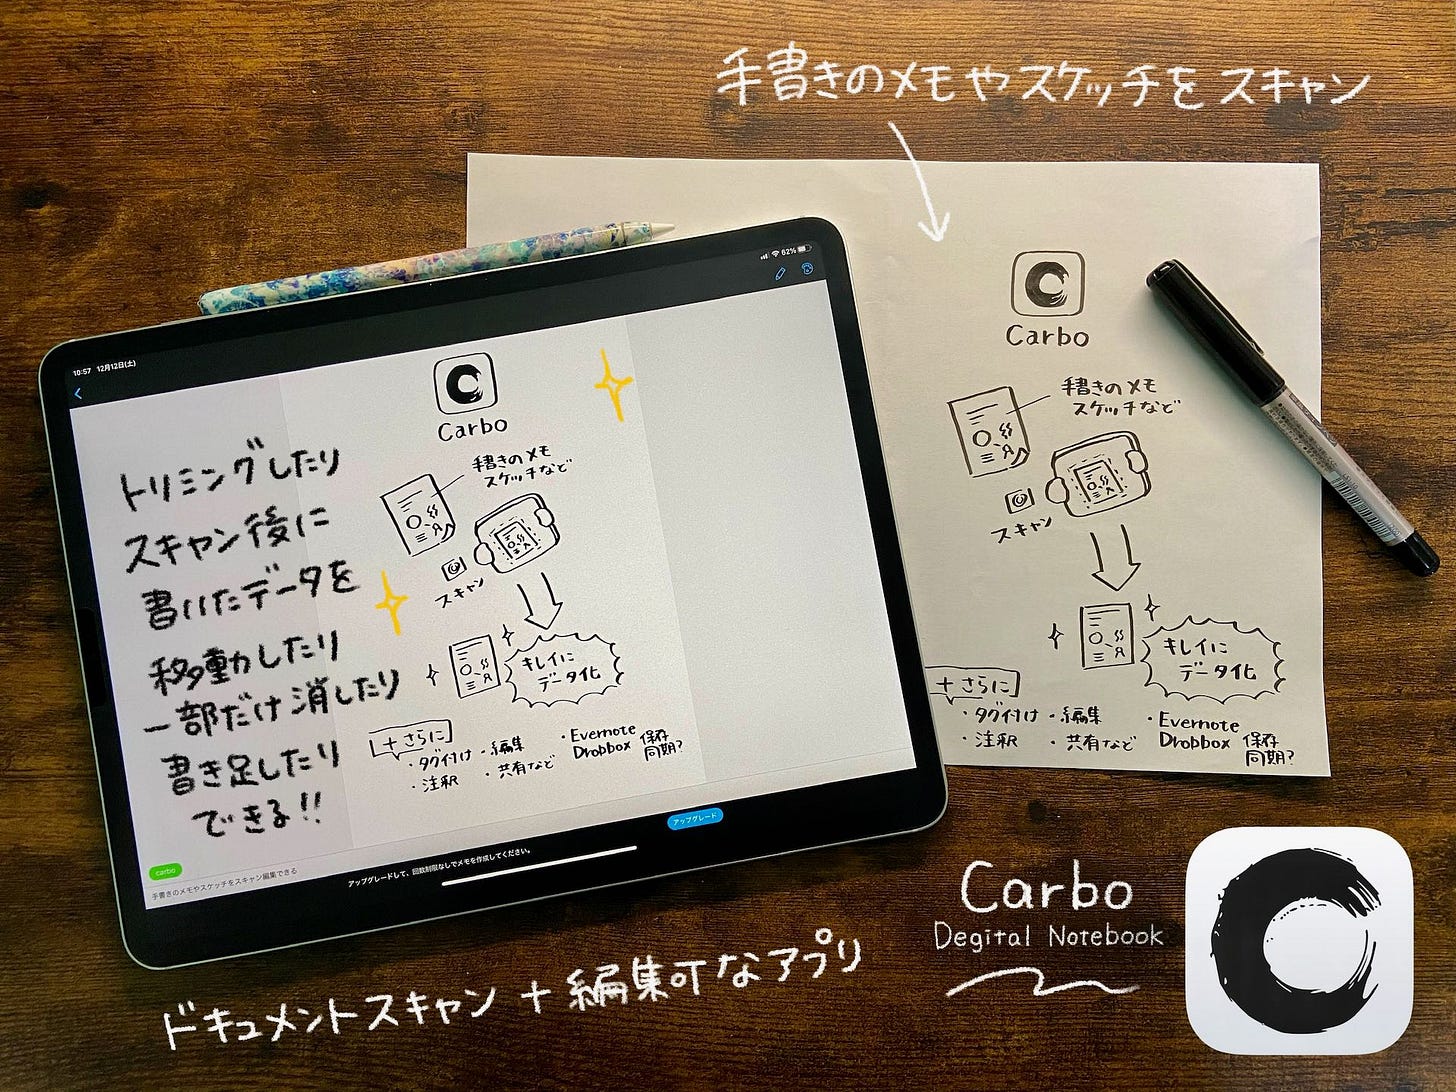 手書きのメモやスケッチをスキャン
Carbo
手書きのメモ
スケッチなど
スキャン
キレイに
データ化
+さらに
・タグ付け ・編集
・注釈 ・共有など
・Evernote
Dropbox 保存
同期?
10:57 12月12日(土)
62%
Carbo
手書きのメモ
スケッチなど
スキャン
キレイに
データ化
+さらに
・タグ付け ・編集
・注釈 ・共有など
・Evernote
Dropbox 保存
同期?
トリミングしたり
スキャン後に
書いたデータを
移動したり
一部だけ消したり
書き足したり
できる!!
carbo
手書きのメモやスケッチをスキャン編集できる
アップグレードして、回数制限なしでメモを作成してください。
アップグレード
Carbo
Degital Notebook
ドキュメントスキャン+編集可なアプリ